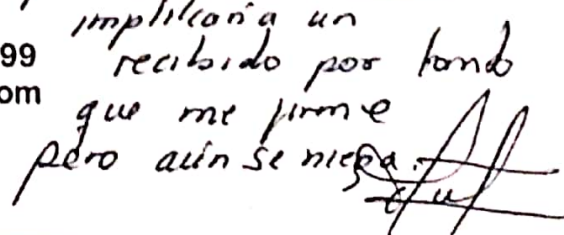 implicaría un
99 recibido por tando
om que me firme
pero aún se niega.